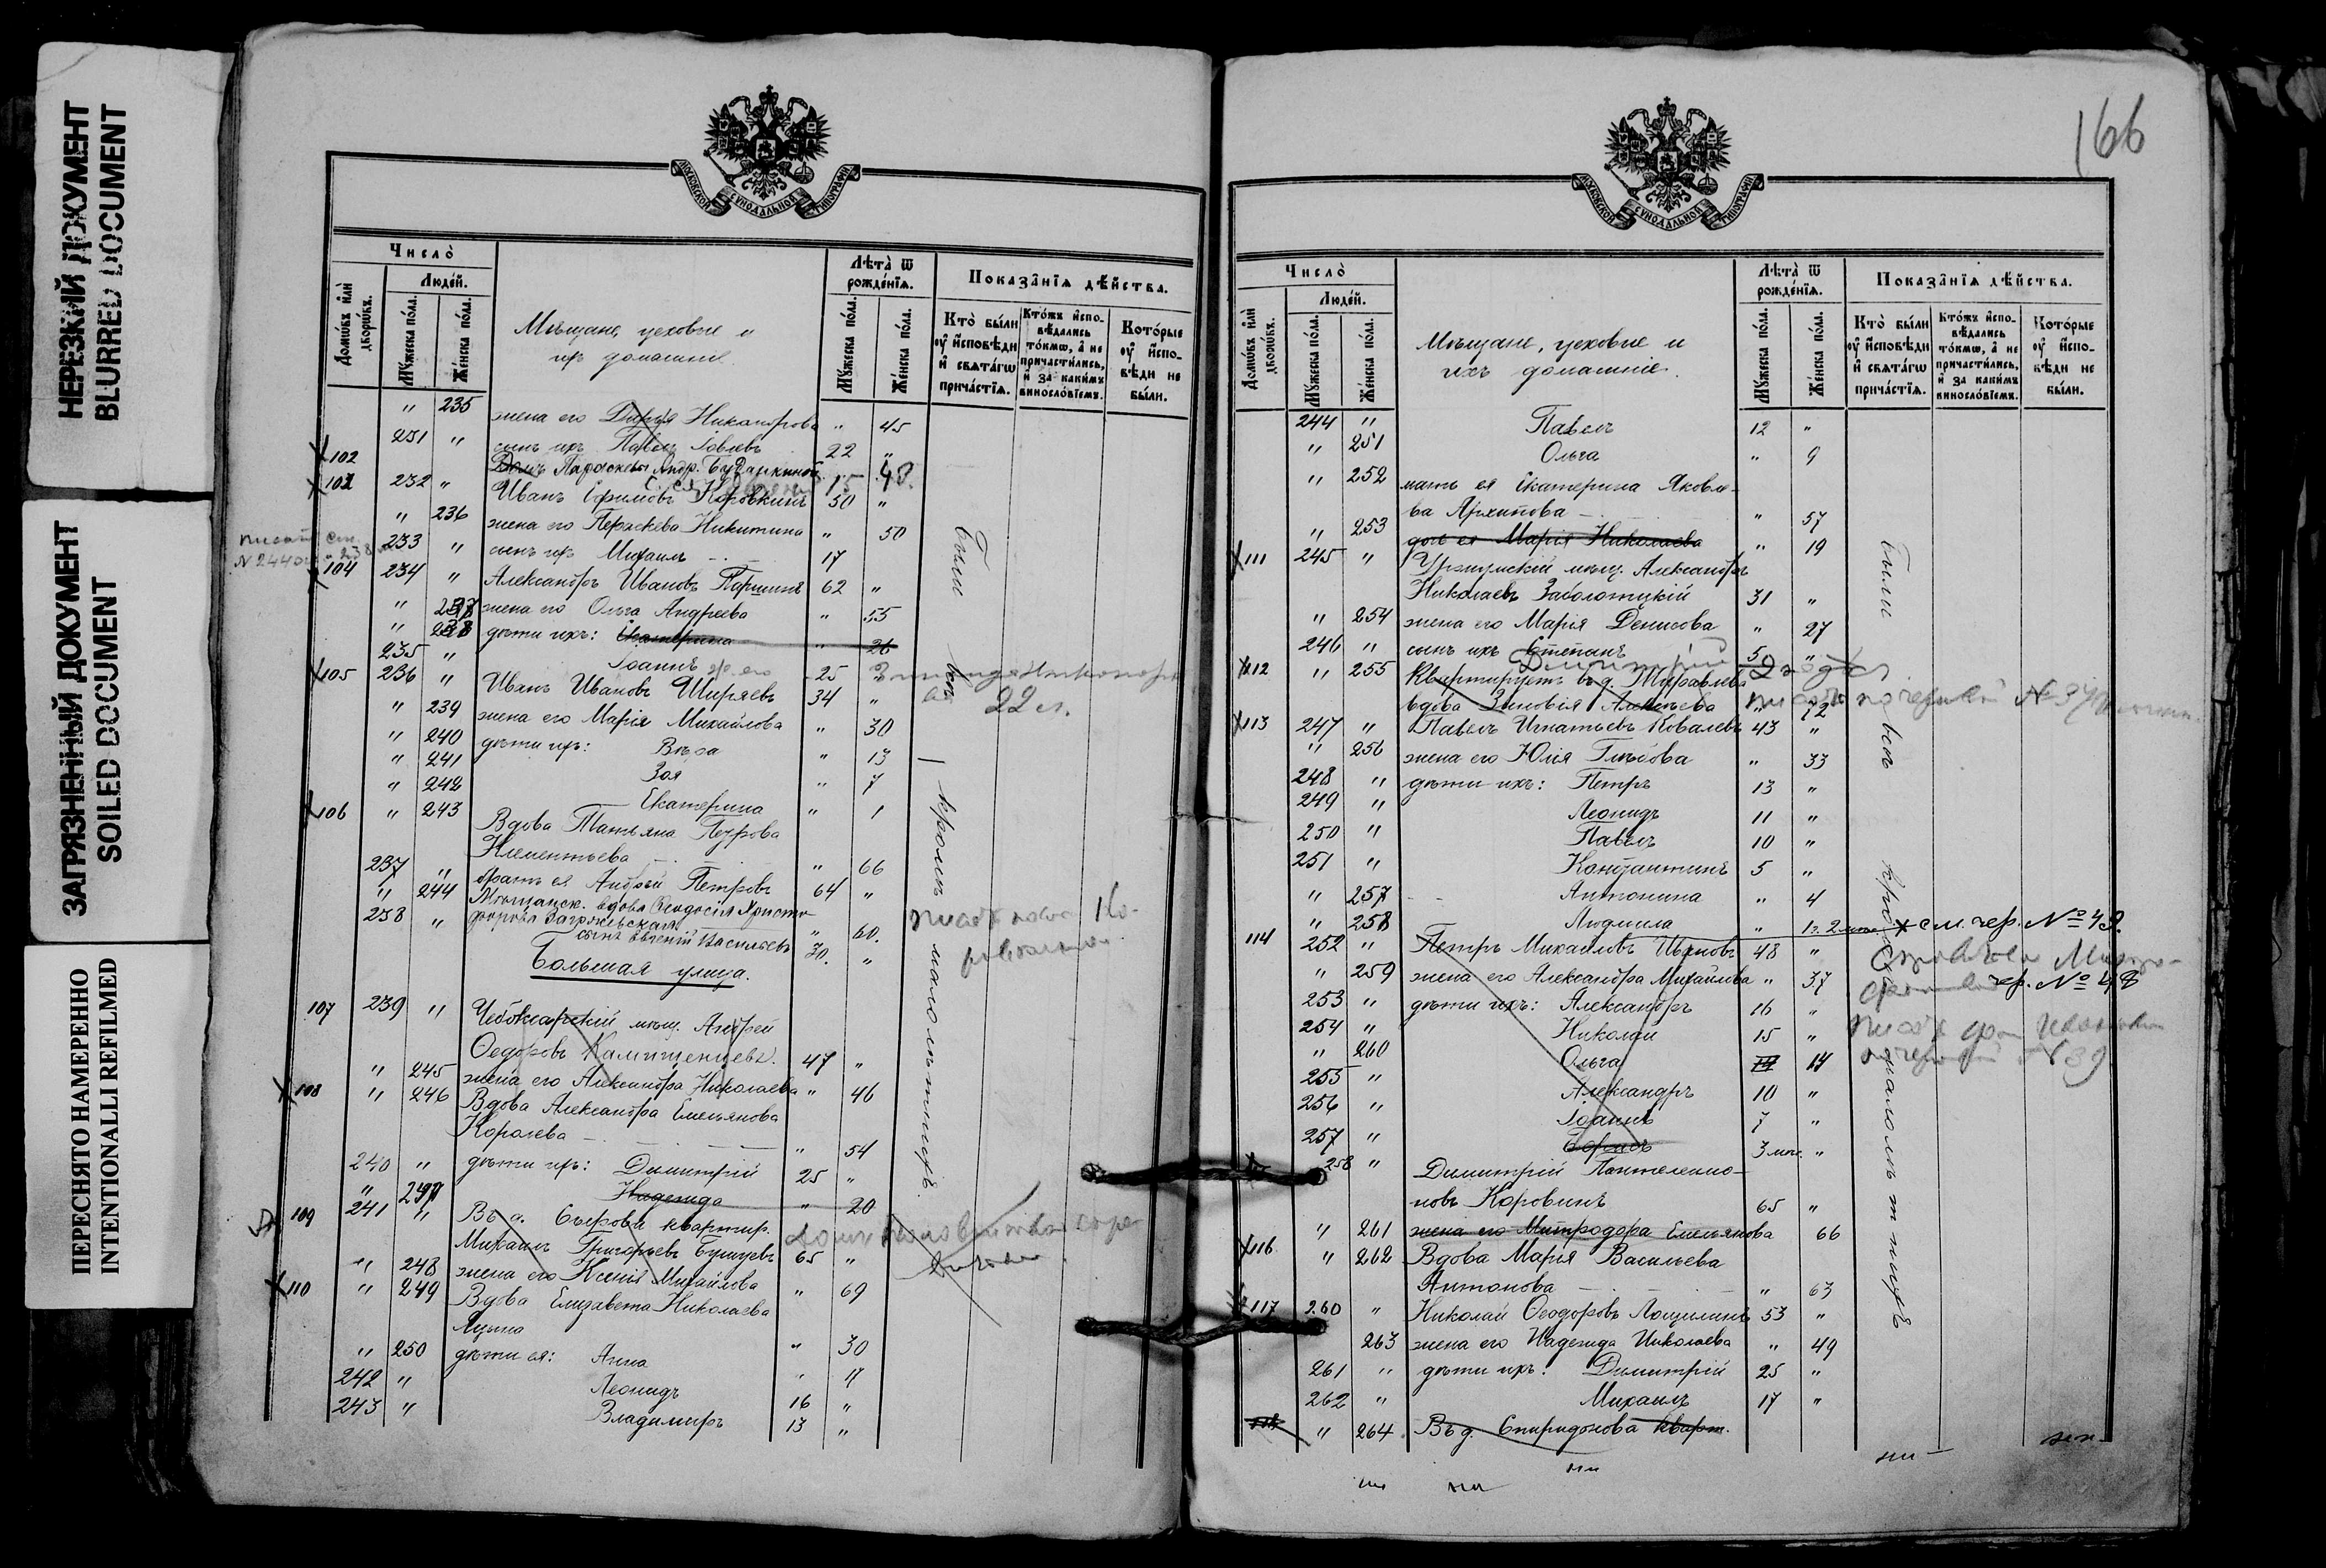 НЕРЕЗКИЙ ДОКУМЕНТ
BLURRED DOCUMENT
ЗАГРЯЗНЕННЫЙ ДОКУМЕНТ
SOILED DOCUMENT
ПЕРЕСНЯТО НАМЕРЕННО
INTENTIONALLI REFILMED
МОСКОВСКОЙ СѴНОДАЛЬНОЙ ТИПОГРАФІИ
Число̀
Людей.
Домѡвъ илѝ дворѡвъ.
Мꙋжеска пола.
Женска пола.
Мѣщане, цеховые и
ихъ домашніе.
Лѣта̀ ѿ рожденїѧ.
Мꙋжеска пола.
Женска пола.
Показанїѧ дѣйства.
Кто̀ были оу̓ исповѣди и свѧтагѡ причастїѧ.
Ктожъ исповѣдались токмѡ, а не причастились, и за какимъ винословїемъ.
Которые оу̓ исповѣди не были.
" 235 жена его Дарія Никанорова " 45
231 " сынъ ихъ Павелъ 22 "
102 Домъ Параскевы Андр. 48.
232 " Иванъ Ефимовъ 50 "
" 236 жена его Параскева Никитина " 50
233 " сынъ ихъ Михаилъ 17
104 234 " Александръ Ивановъ Паршинъ 62 "
" 237 жена его Ольга Андреева " 55
" 238 дѣти ихъ: Екатерина " 26
235 " Іоаннъ 25
105 236 " Иванъ Ивановъ Ширяевъ 34 "
22 л.
" 239 жена его Марія Михайлова " 30
" 240 дѣти ихъ: Вѣра " 13
" 241 Зоя " 7
" 242 Екатерина " 1
106 " 243 Вдова Татьяна Петрова
Клементьева " 66
237 " братъ ея Андрей Петровъ 64 "
" 244 Мѣщанск. вдова Ѳеодосія Христо-
форова Загряжевская " 60.
238 " сынъ Евгеній Васильевъ 30. "
Большая улица.
107 239 " Чебоксарскій мѣщ. Андрей
Ѳедоровъ 47 "
" 245 жена его Александра Николаева " 46
108 " 246 Вдова Александра Емельянова
Королева " 54
240 " дѣти ихъ: Димитрій 25 "
" 247 Надежда " 20
109 241 " Въ д. квартир.
Михаилъ Григорьевъ 65 "
" 248 жена его Ксенія Михайлова " 69
110 " 249 Вдова Елизавета Николаева
" 30
" 250 дѣти ея: Анна "
242 " Леонидъ 16 "
243 " Владимиръ 13 "
Были всѣ кромѣ малолѣтнихъ.
166
МОСКОВСКОЙ СѴНОДАЛЬНОЙ ТИПОГРАФІИ
Число̀
Людей.
Домѡвъ илѝ дворѡвъ.
Мꙋжеска пола.
Женска пола.
Мѣщане, цеховые и
ихъ домашніе.
Лѣта̀ ѿ рожденїѧ.
Мꙋжеска пола.
Женска пола.
Показанїѧ дѣйства.
Кто̀ были оу̓ исповѣди и свѧтагѡ причастїѧ.
Ктожъ исповѣдались токмѡ, а не причастились, и за какимъ винословїемъ.
Которые оу̓ исповѣди не были.
244 " Павелъ 12 "
" 251 Ольга " 9
" 252 мать ея Екатерина Яковле-
ва Архипова " 57
" 253 дочь ея Марія Николаева " 19
111 245 " Уржумскій мѣщ. Александръ
Николаевъ Заболотцкій 31 "
" 254 жена его Марія Денисова " 27
246 " сынъ ихъ Степанъ 5 "
Димитрій
112 " 255 Квартируетъ въ д. Журавлева
вдова Зиновія Алексѣева " 72
113 247 " Павелъ Игнатьевъ Ковалевъ 43 "
" 256 жена его Юлія Глѣбова " 33
248 " дѣти ихъ: Петръ 13 "
249 " Леонидъ 11 "
250 " Павелъ 10 "
251 " Константинъ 5 "
" 257 Антонина " 4
" 258 Людмила " 1 г. 2 мѣс. см. чер. № 43.
114 252 " Петръ Михаиловъ Ивановъ 48 "
" 259 жена его Александра Михайлова " 37
чер. № 48
253 " дѣти ихъ: Александръ 16 "
254 " Николай 15 "
" 260 Ольга 14
255 " Александръ 10 "
256 " Іоаннъ 7 "
257 " Борисъ 3 мѣс. "
258 " Димитрій Пантелеимо-
новъ Коровинъ 65 "
" 261 жена его Митродора Емельянова 66
116 " 262 Вдова Марія Васильева
Антонова " 63
117 260 " Николай Ѳеодоровъ Лощилинъ 53 "
263 жена его Надежда Николаева " 49
261 " дѣти ихъ: Димитрій 25 "
262 " Михаилъ 17 "
" 264 Въ д. Спиридонова кварт.
Были всѣ кромѣ малолѣтнихъ